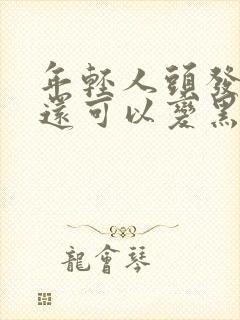 年輕人頭發
還可以變黑
龍會琴